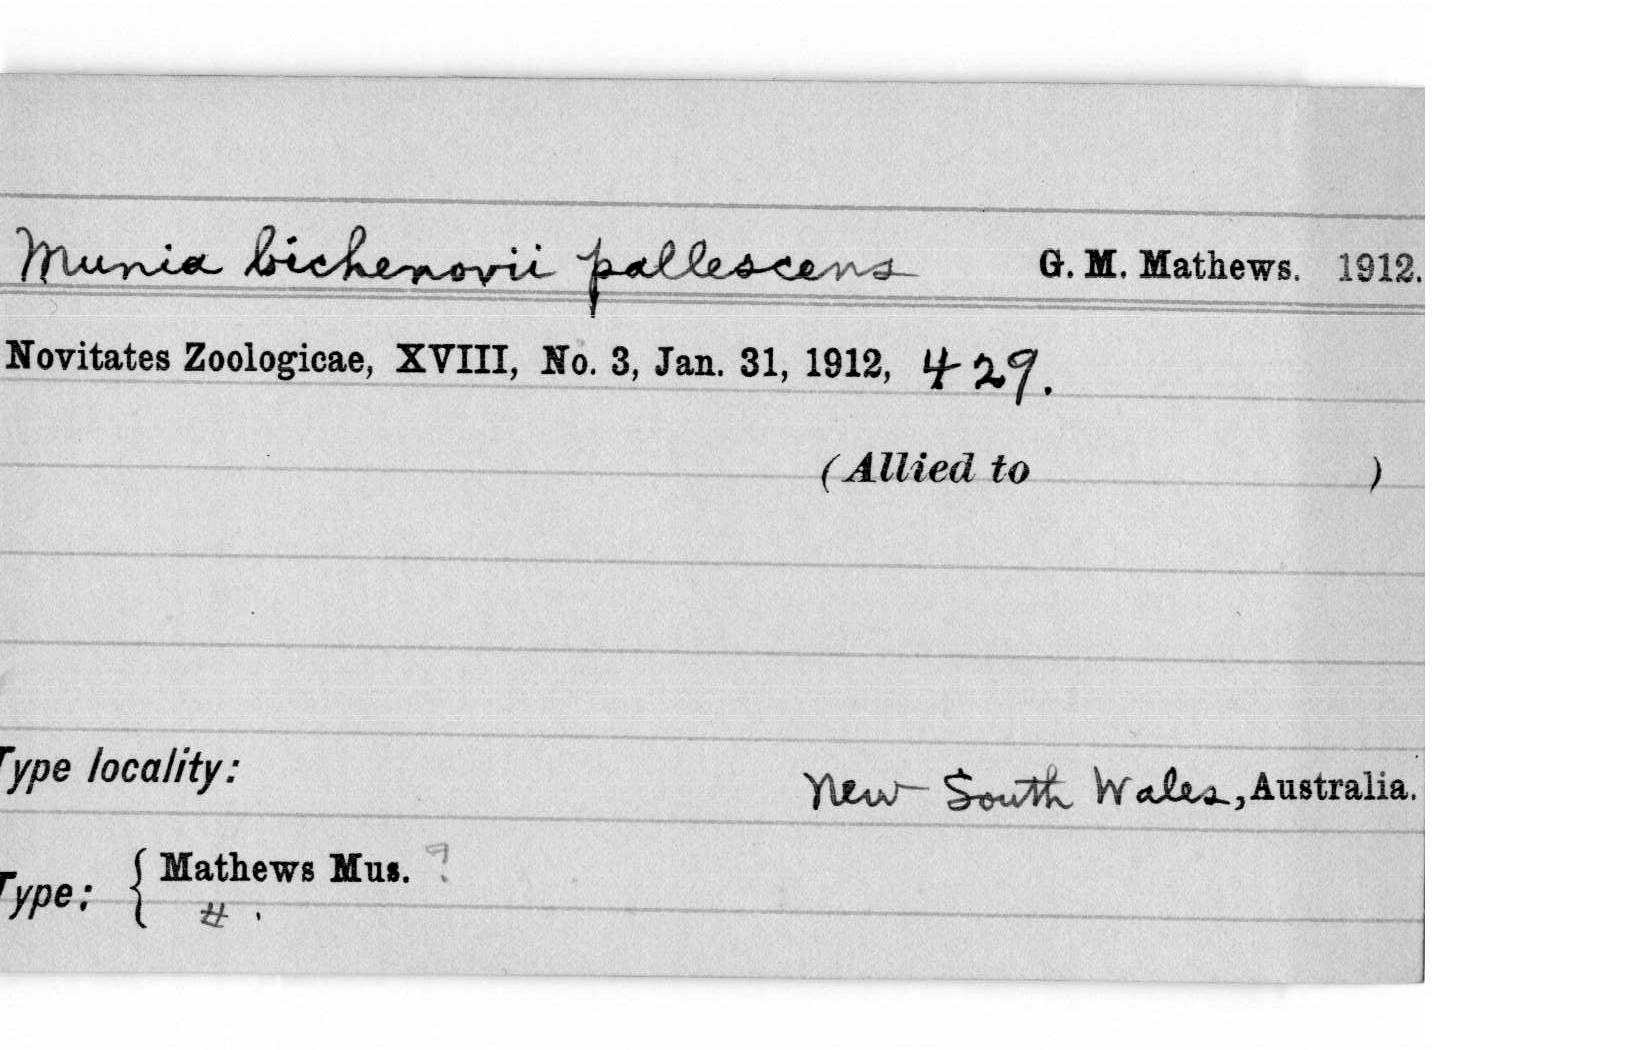 Munia bichenovii pallescens G. M. Mathews. 1912.
Novitates Zoologicae, XVIII, No. 3, Jan. 31, 1912, 429.
(Allied to )
Type locality:
New South Wales, Australia.
Type: { Mathews Mus. ?
# .